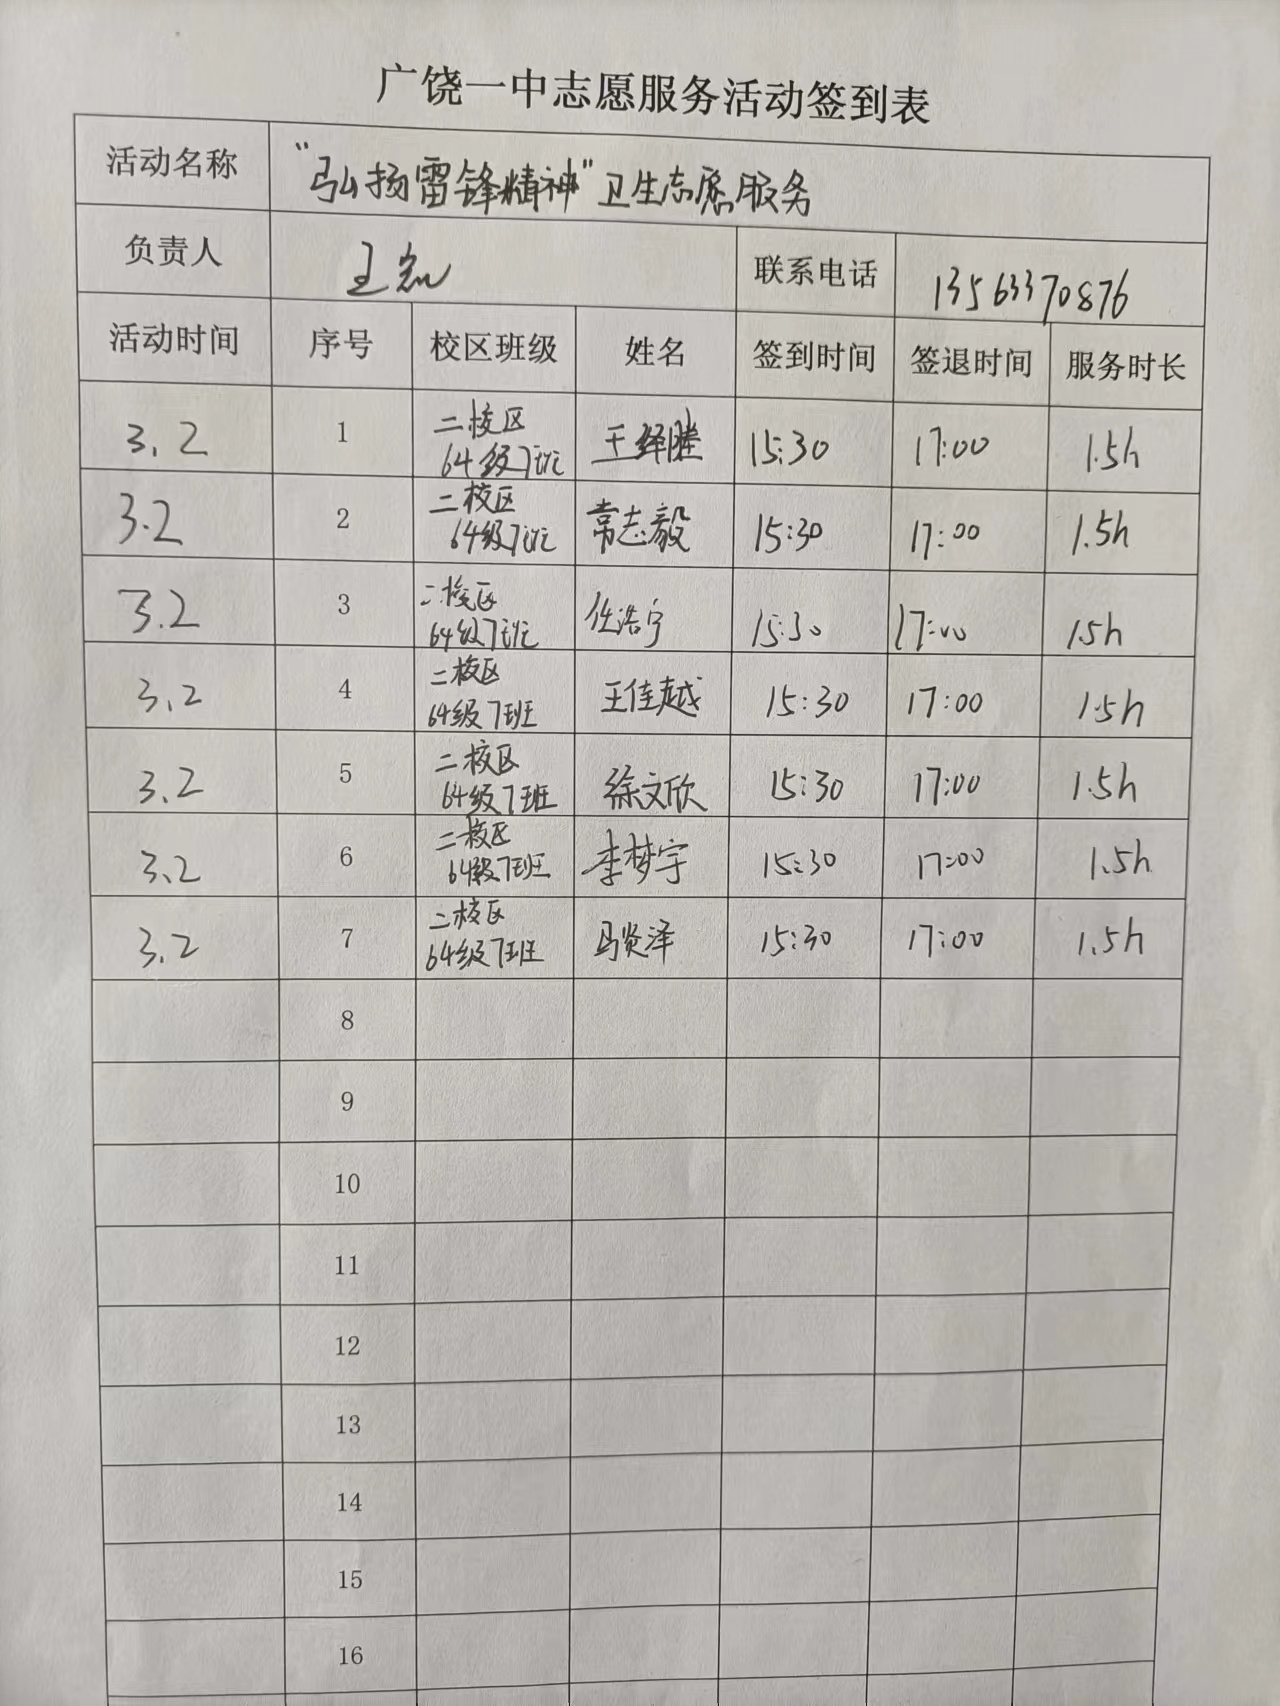 广饶一中志愿服务活动签到表
活动名称 "弘扬雷锋精神"卫生志愿服务
负责人 王 联系电话 13563370876
活动时间 序号 校区班级 姓名 签到时间 签退时间 服务时长
3.2 1 二校区 64级7班 王绎腾 15:30 17:00 1.5h
3.2 2 二校区 64级7班 常志毅 15:30 17:00 1.5h
3.2 3 二校区 64级7班 任浩宁 15:30 17:00 1.5h
3.2 4 二校区 64级7班 王佳越 15:30 17:00 1.5h
3.2 5 二校区 64级7班 徐文欣 15:30 17:00 1.5h
3.2 6 二校区 64级7班 李梦宇 15:30 17:00 1.5h
3.2 7 二校区 64级7班 马贤泽 15:30 17:00 1.5h
8
9
10
11
12
13
14
15
16